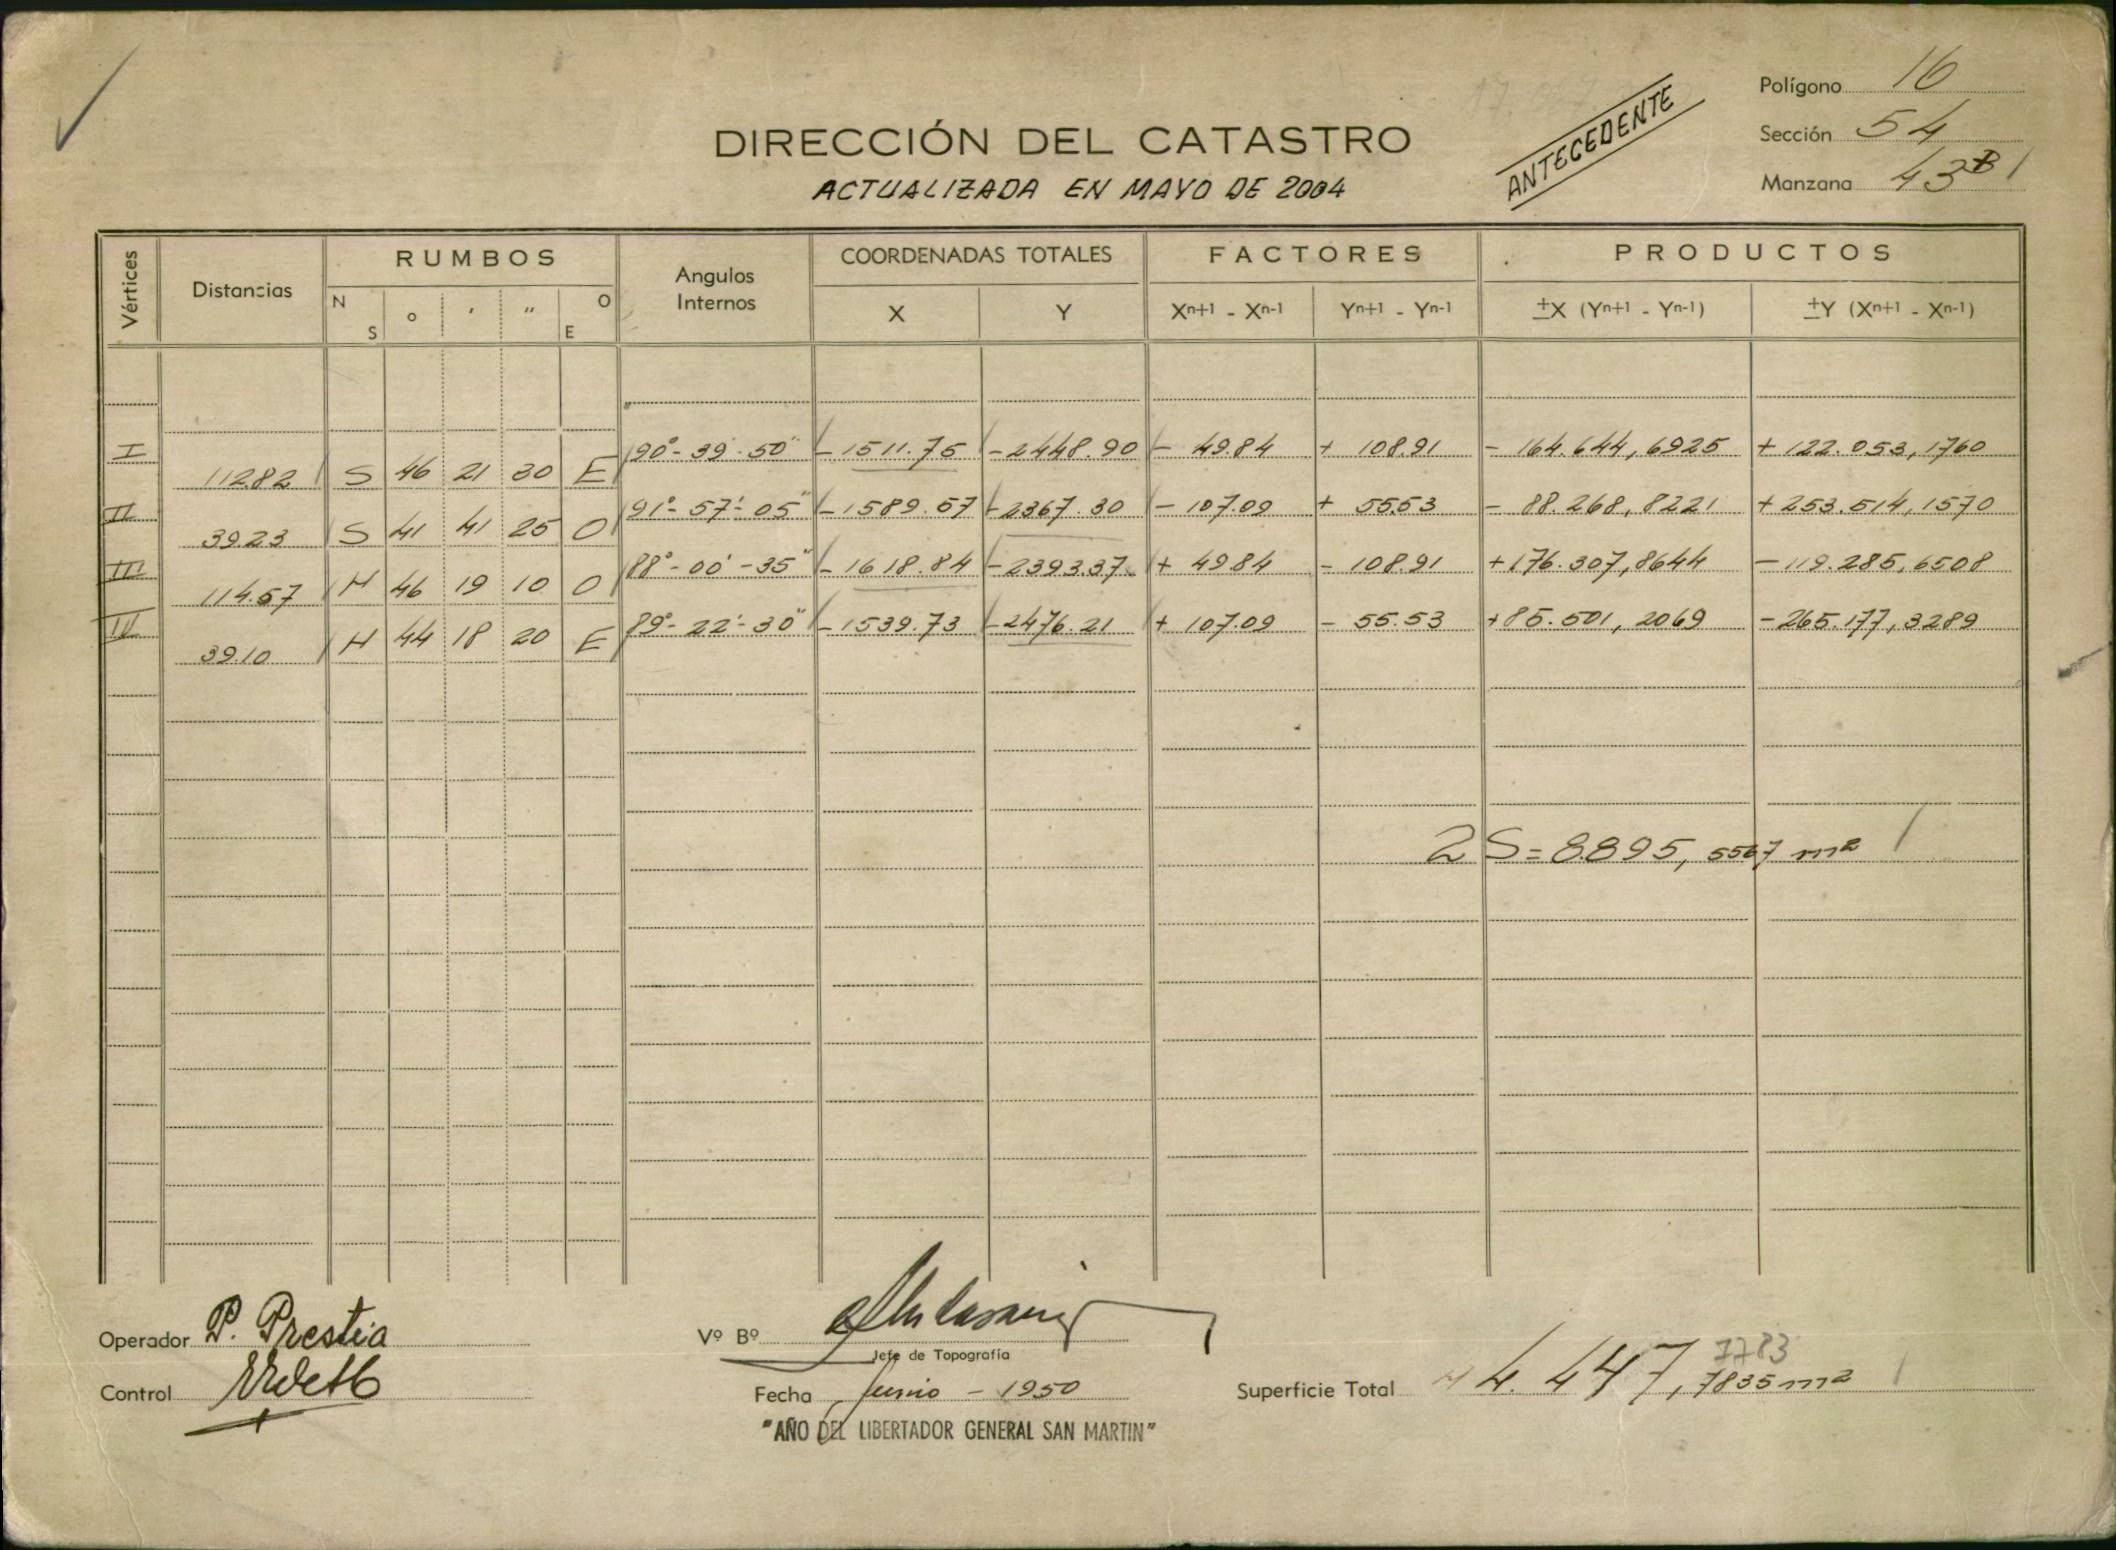 Polígono 16
DIRECCIÓN DEL CATASTRO
ANTECEDENTE
Sección 54
ACTUALIZADA EN MAYO DE 2004
Manzana 43B
Vértices Distancias RUMBOS Angulos Internos COORDENADAS TOTALES FACTORES PRODUCTOS
N S o ' " O E X Y Xn+1 - Xn-1 Yn+1 - Yn-1 ±X (Yn+1 - Yn-1) ±Y (Xn+1 - Xn-1)
I 90°-39'-50" -1511.75 -2448.90 - 49.84 + 108.91 - 164.644,6925 + 122.053,1760
112.82 S 46 21 30 E
II 91°-57'-05" -1589.57 -2367.30 - 107.09 + 55.53 - 88.268,8221 + 253.514,1570
39.23 S 41 41 25 O
III 88°-00'-35" -1618.84 -2393.37 + 49.84 - 108.91 +176.307,8644 -119.285,6508
114.57 N 46 19 10 O
IV 89°-22'-30" -1539.73 -2476.21 + 107.09 - 55.53 +85.501,2069 -265.177,3289
39.10 N 44 18 20 E
2S = 8.895,5567 m²
Operador P. Prestia
Vº Bº
Jefe de Topografía
7783
Control
Fecha Junio - 1950
Superficie Total 4.447,7835 m²
"AÑO DEL LIBERTADOR GENERAL SAN MARTIN"